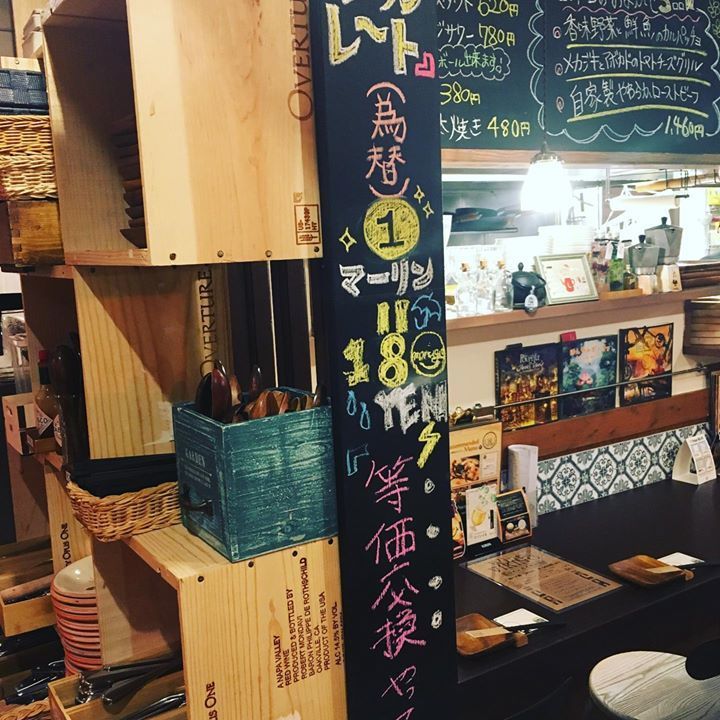 レート』
(為替)
①
マーリン
=
180
YEN
等価交換やって
620円
サワー 780円
ボール出来ます!
380円
焼き 480円
香味野菜と鮮魚のカルパッチョ
メカジキとアボカドのトマトチーズグリル
自家製やわらかローストビーフ
1,460円
OVERTURE
OVERTURE
GARDEN
OPUS ONE
A NAPA VALLEY
RED WINE
PRODUCED & BOTTLED BY
ROBERT MONDAVI
BARON PHILIPPE DE ROTHSCHILD
OAKVILLE, CA
PRODUCT OF THE USA
ALC 14.5% BY VOL.
OPUS ONE
Recommended
Menu